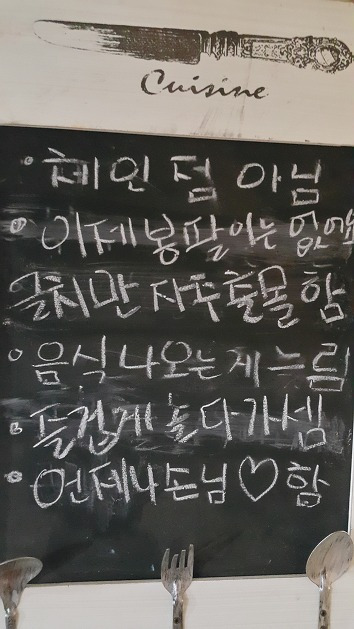 Cuisine
• 체인점 아님
• 이제 봉팔이는 없어요
그치만 자주 출몰함
• 음식 나오는게 느림
• 즐겁게 놀다가셈
• 언제나 손님♡함